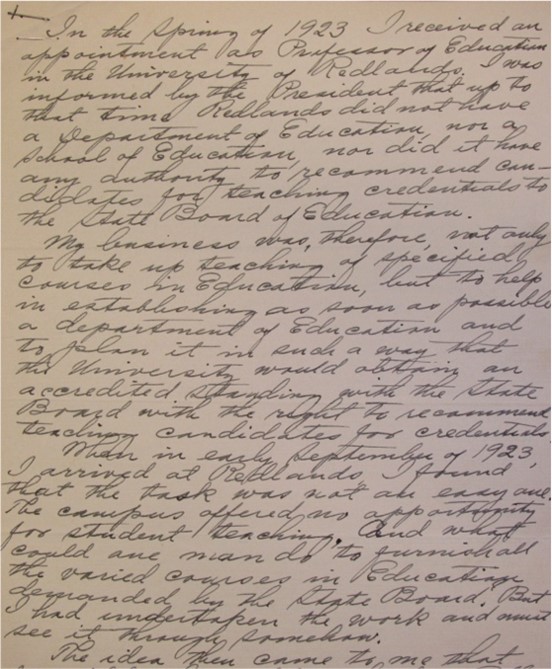 In the Spring of 1923 I received an
appointment as Professor of Education
in the University of Redlands. I was
informed by the President that up to
that time Redlands did not have
a Department of Education, nor a
School of Education, nor did it have
any authority to recommend can-
didates for teaching credentials to
the State Board of Education.
My business was, therefore, not only
to take up teaching of specified
courses in Education, but to help
in establishing as soon as possible
a department of Education and
to plan it in such a way that
the University would obtain an
accredited standing with the State
Board with the right to recommend
teaching candidates for credentials
When in early September of 1923,
I arrived at Redlands I found
that the task was not an easy one.
The campus offered no opportunity
for student teaching. And what
could one man do to furnish all
the varied courses in Education
demanded by the State Board. But
I had undertaken the work and must
see it through somehow.
The idea then came to me that